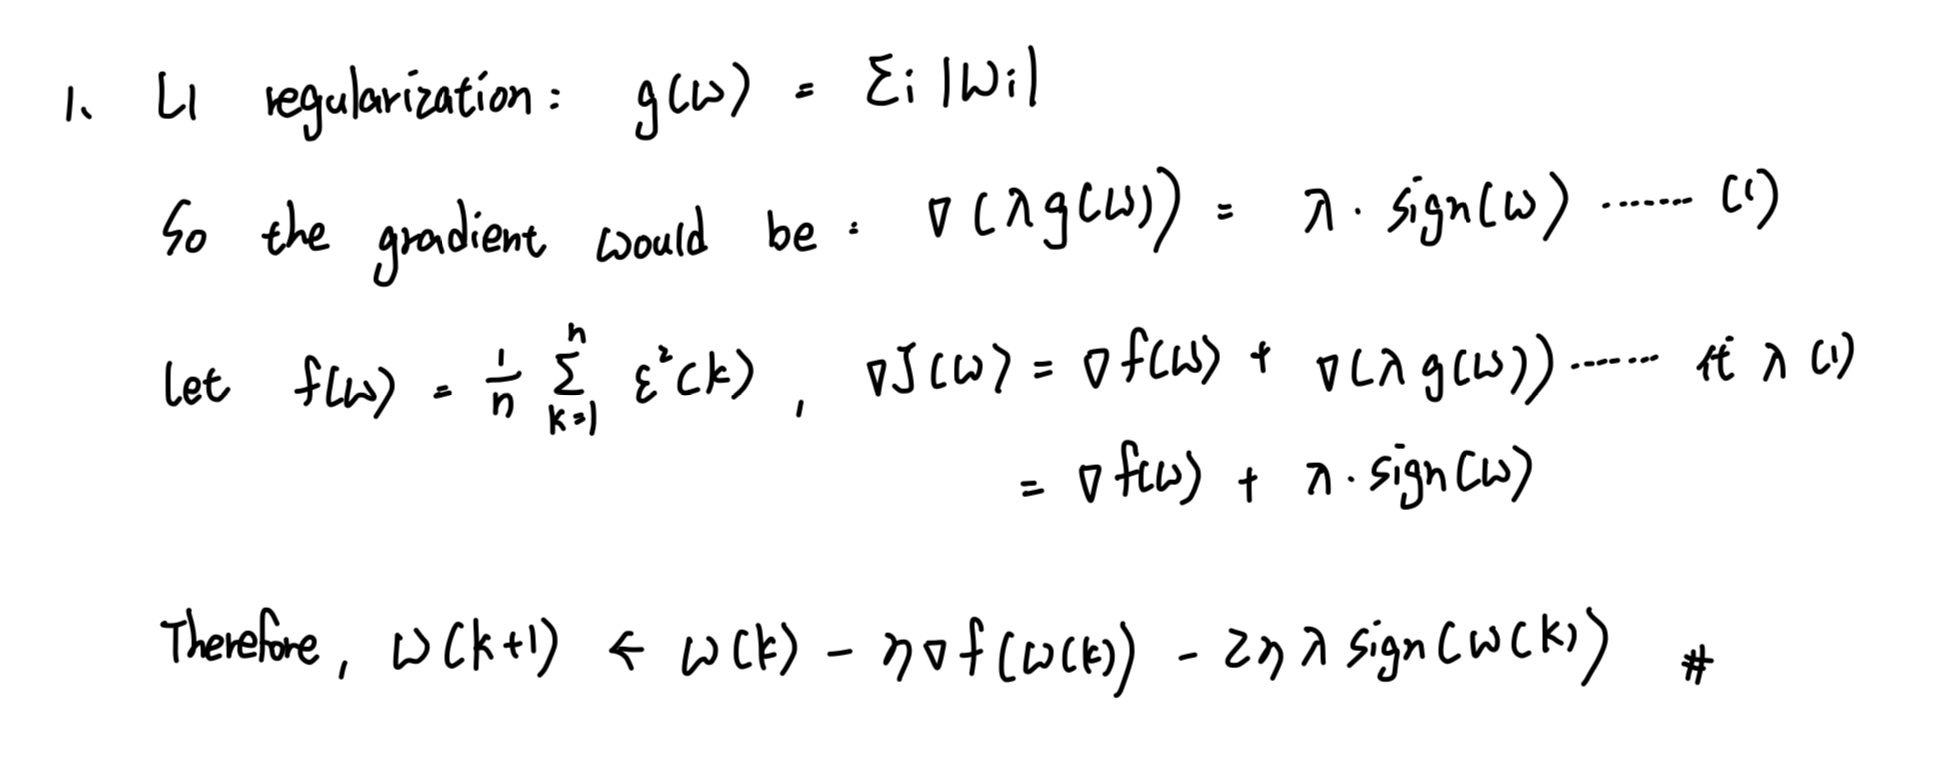 1、 L1 regularization: g(ω) = Σi |ωi|
So the gradient would be: ∇(λg(ω)) = λ·sign(ω) ⋯⋯ (1)
let f(ω) = 1/n Σ_{k=1}^{n} ε²(k) , ∇J(ω) = ∇f(ω) + ∇(λg(ω)) ⋯⋯ 代入(1)
= ∇f(ω) + λ·sign(ω)
Therefore, ω(k+1) ← ω(k) - η∇f(ω(k)) - 2ηλ sign(ω(k)) #